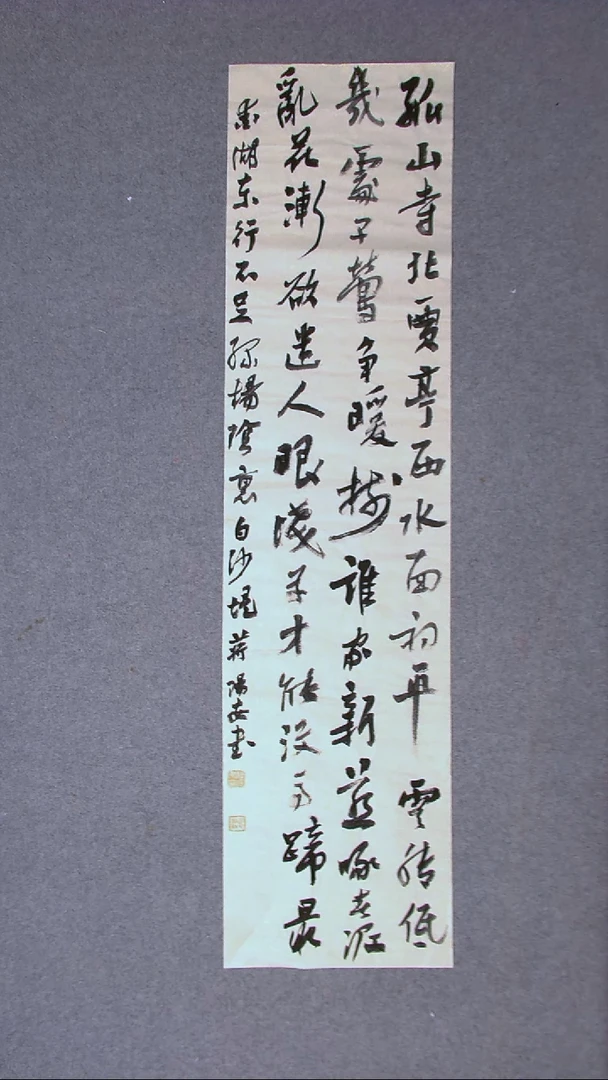 孤山寺北賈亭西水面初平雲脚低
幾處早鶯争暖樹誰家新燕啄春泥
亂花漸欲迷人眼淺草才能没马蹄最
爱湖东行不足綠楊陰裏白沙堤蒋陽安书